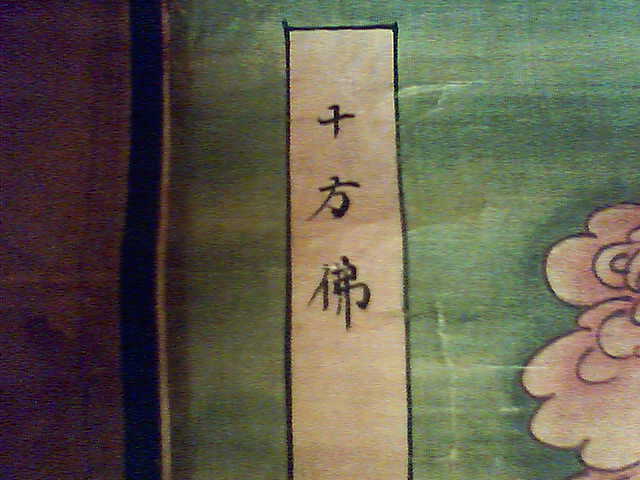 十方佛